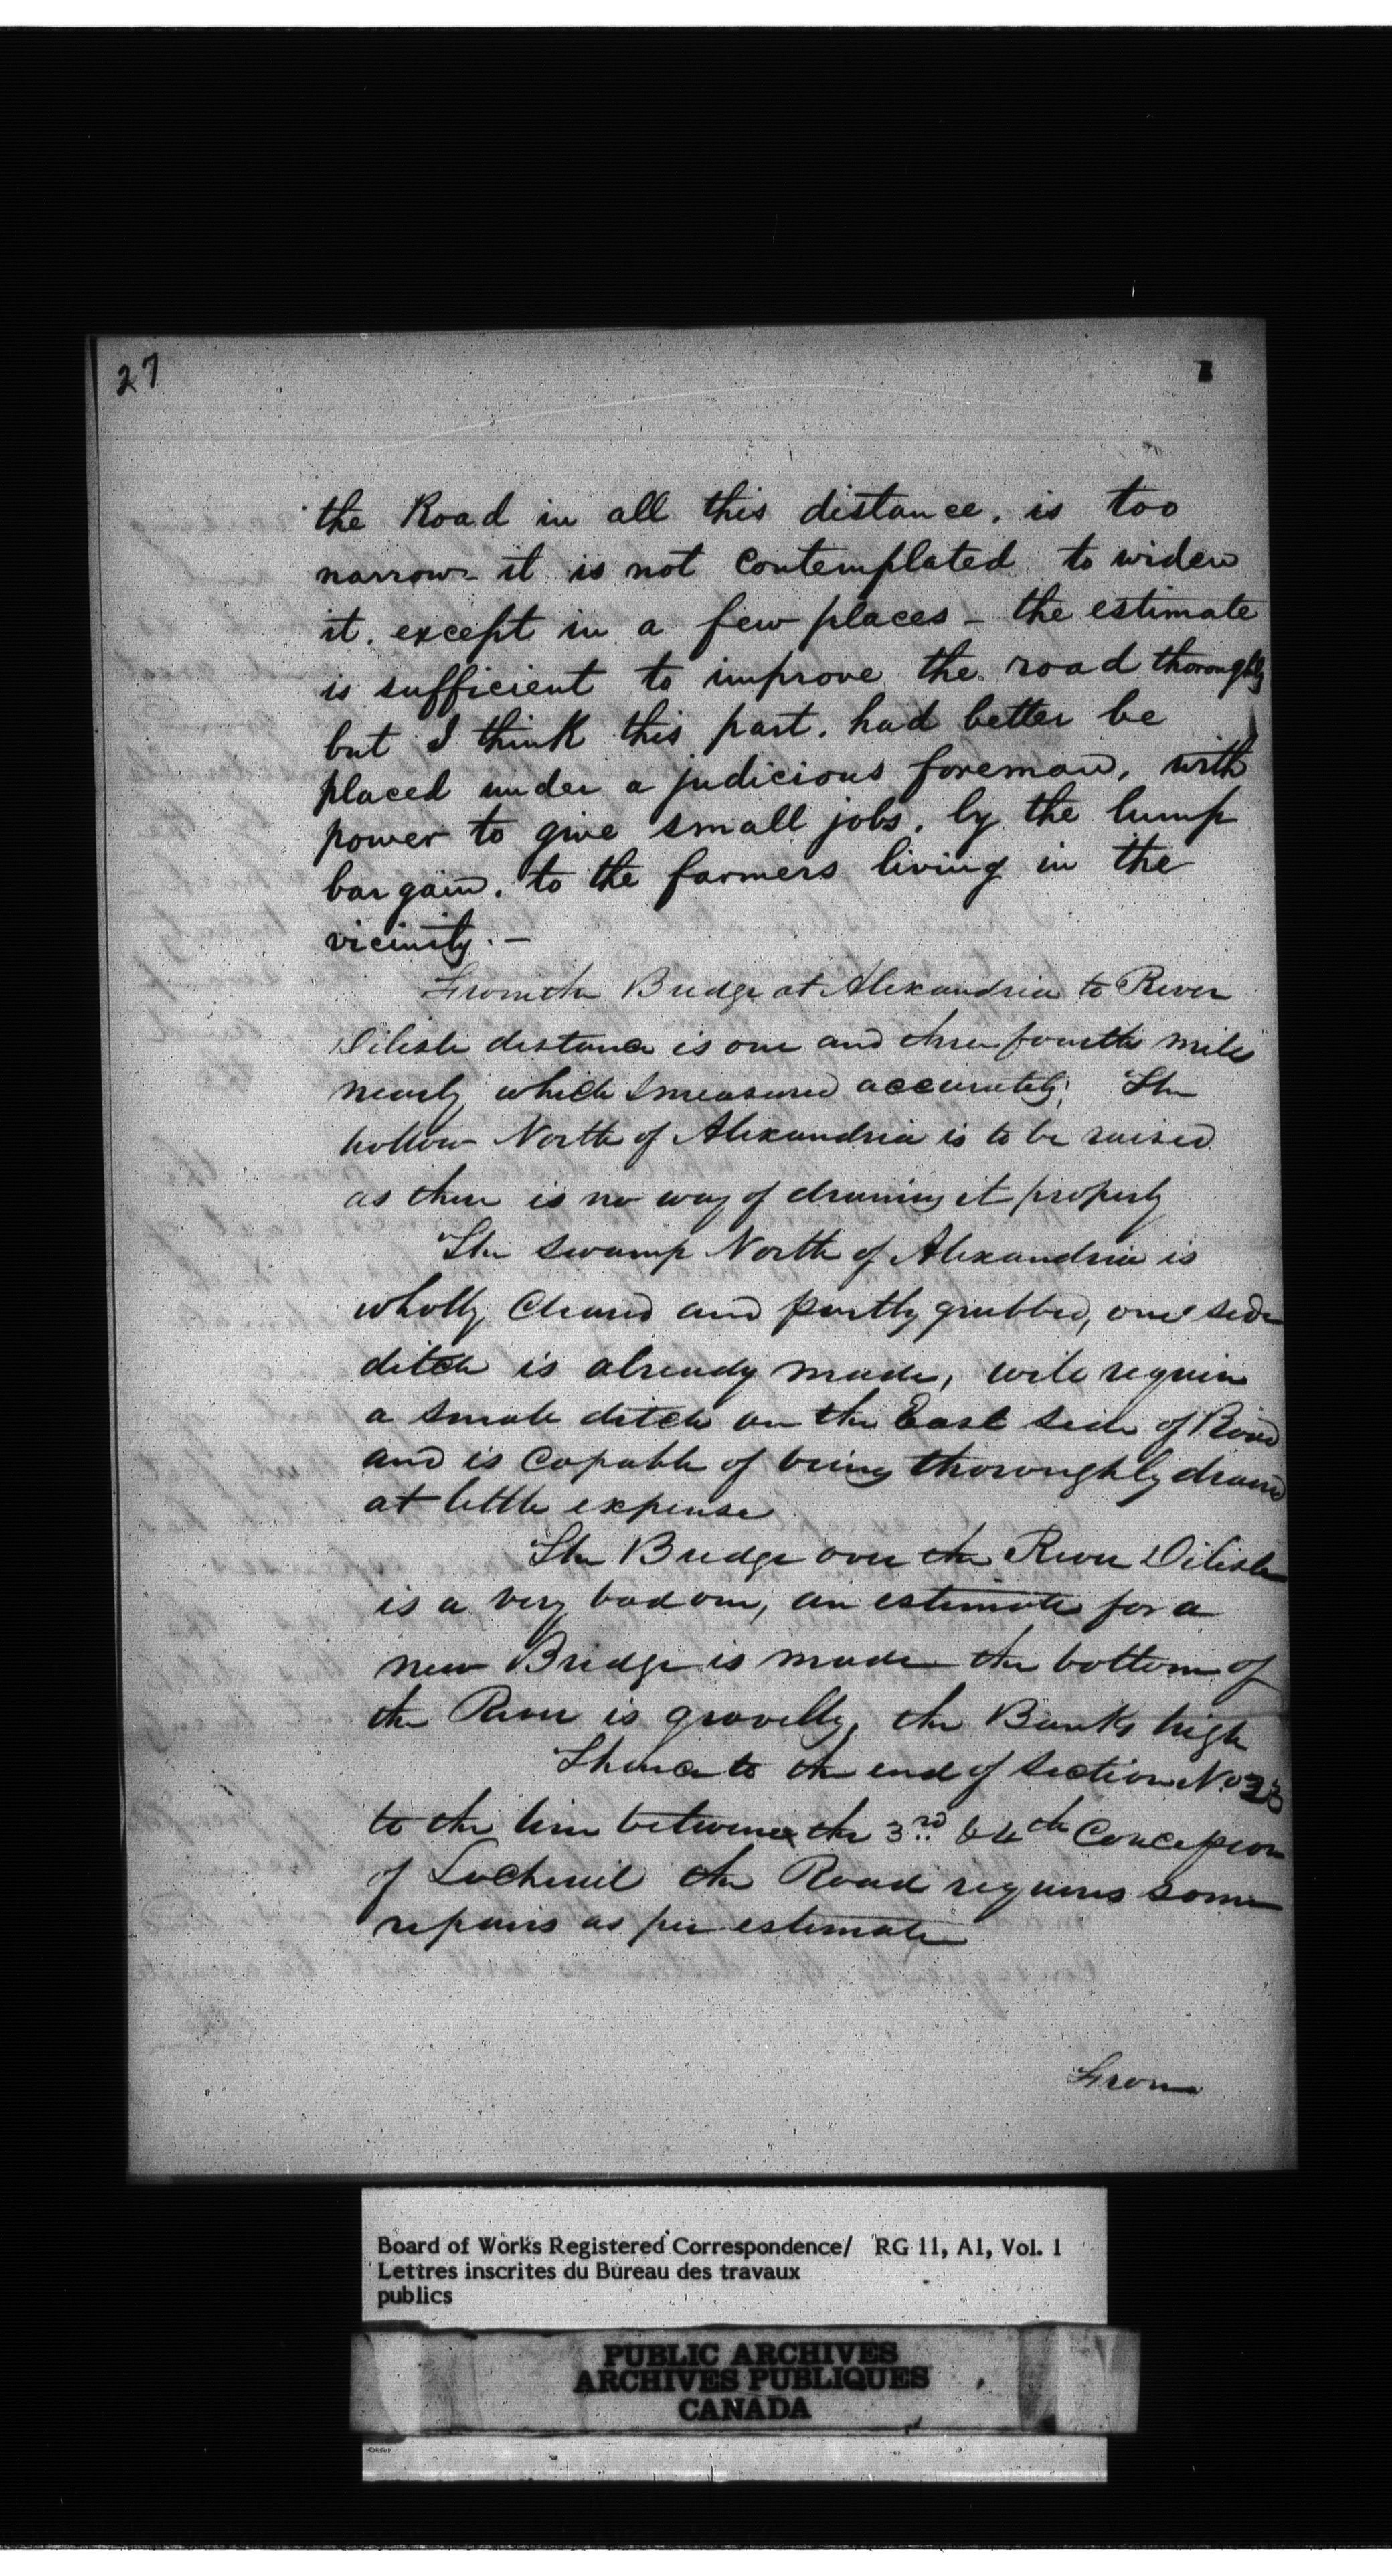 27
the Road in all this distance, is too
narrow it is not Contemplated to widen
it, except in a few places - the estimate
is sufficient to improve the road thoroughly
but I think this part, had better be
placed under a judicious foreman, with
power to give small jobs, by the lump
bargain, to the farmers living in the
vicinity. -
From the Bridge at Alexandria to River
Dilisle distance is one and three fourths miles
nearly which I measured accurately; The
hollow North of Alexandria is to be raised
as there is no way of draining it properly
The Swamp North of Alexandria is
wholly Cleared and partly grubbed, one side
ditch is already made, will require
a small ditch on the East side of Road
and is Capable of being thoroughly drained
at little expense
The Bridge over the River Dilisle
is a very bad one, an estimate for a
new Bridge is made the bottom of
the River is gravelly, the Banks high
Thence to the end of Section No 23
to the line between the 3rd & 4th Concession
of Lochiel the Road requires some
repairs as per estimate
From
Board of Works Registered Correspondence/ RG 11, A1, Vol. 1
Lettres inscrites du Bureau des travaux
publics
PUBLIC ARCHIVES
ARCHIVES PUBLIQUES
CANADA